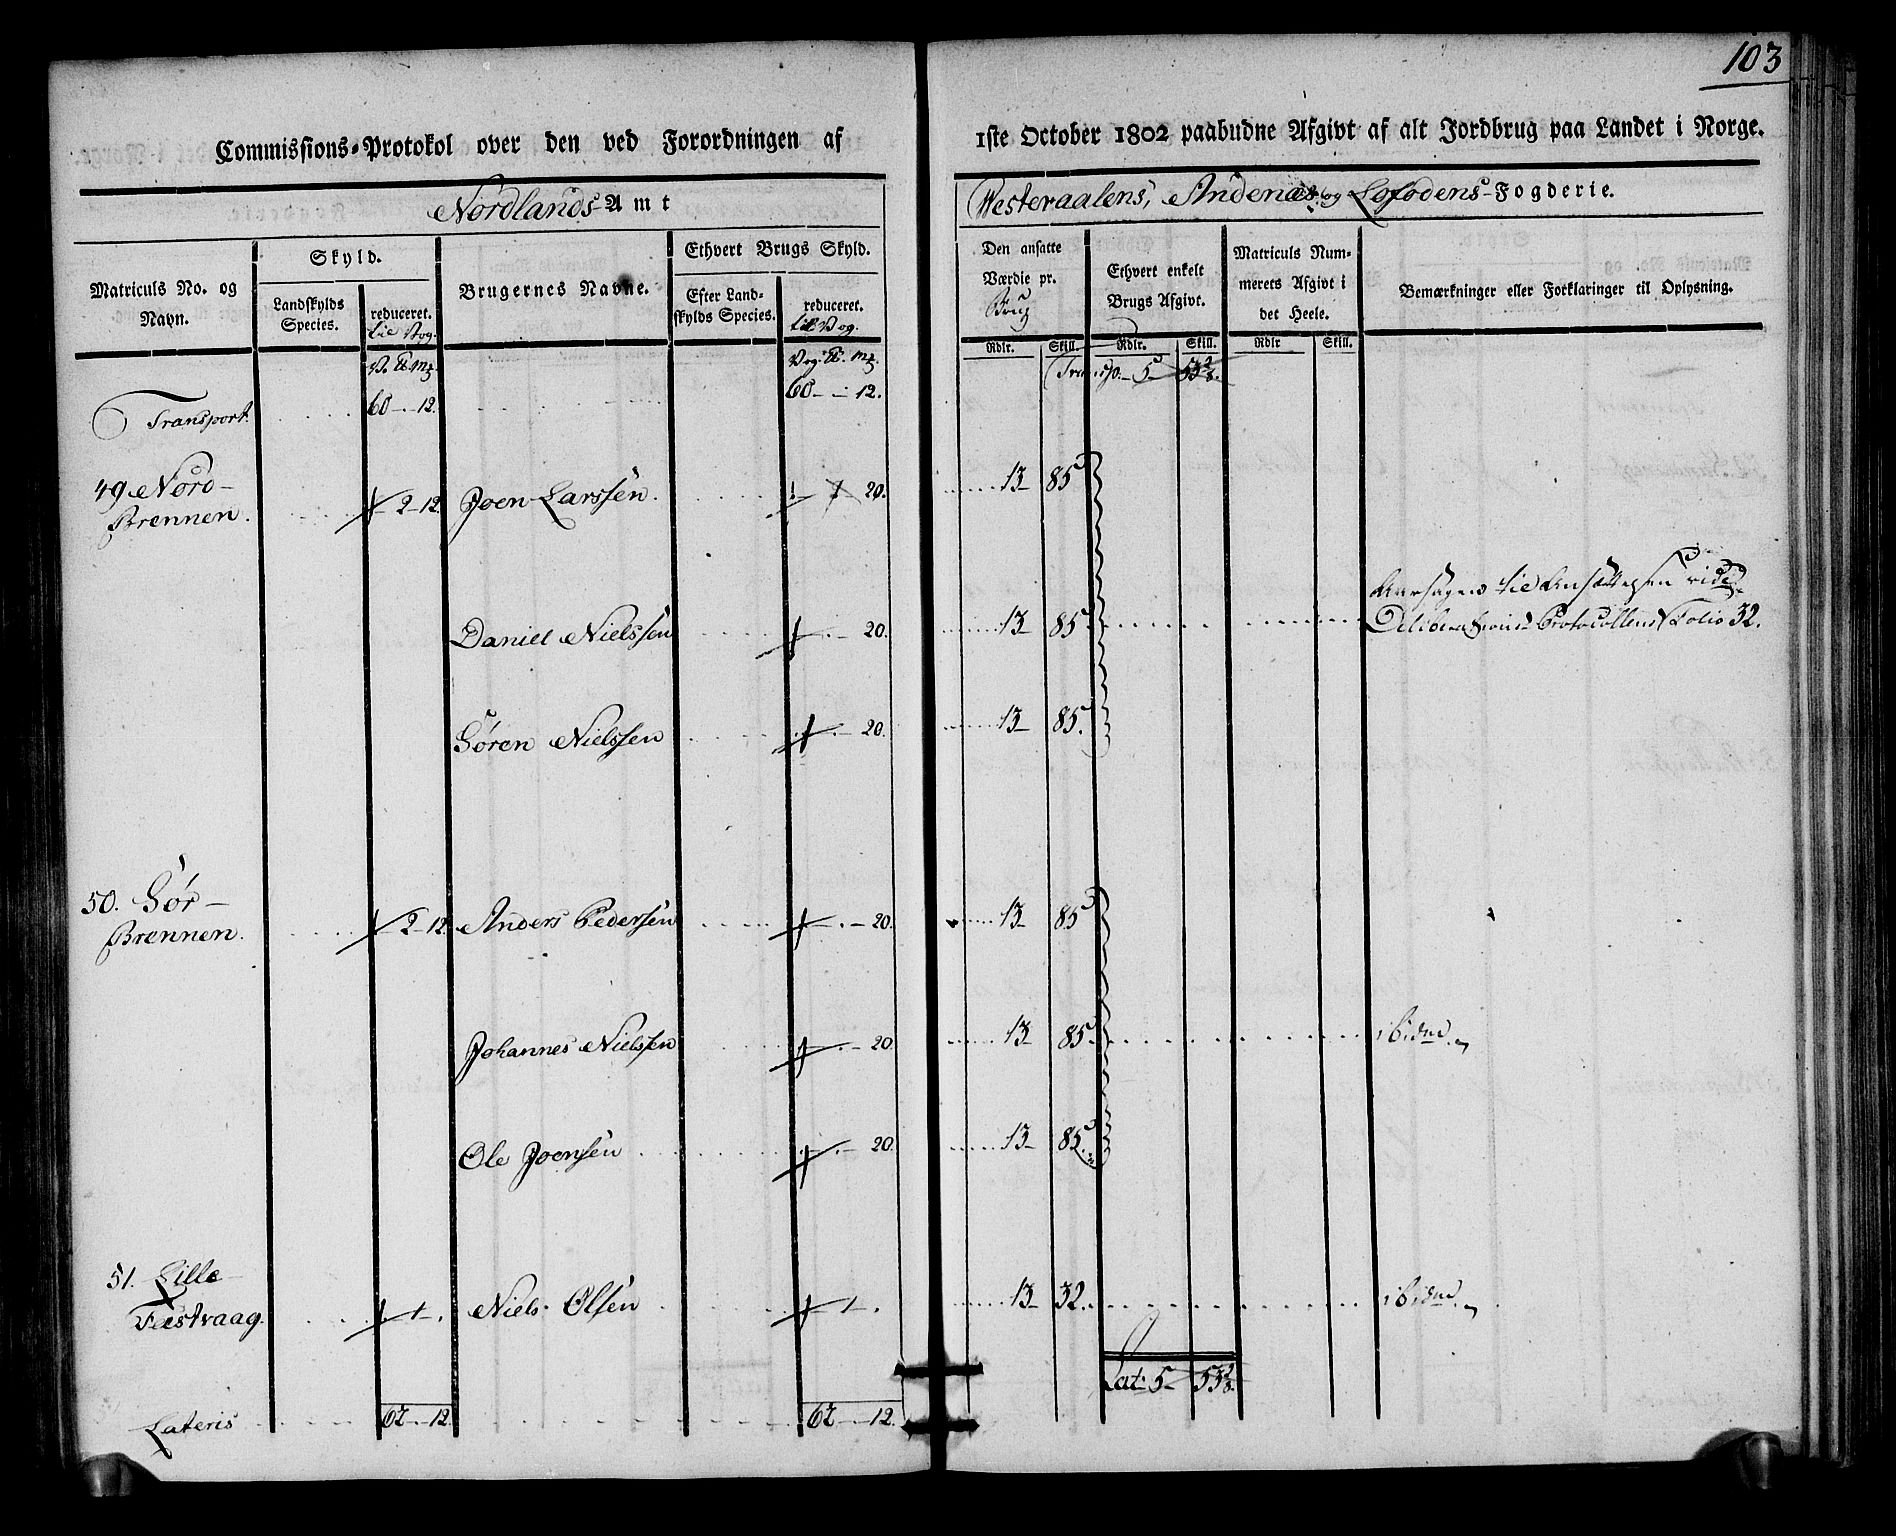 103
Commissions-Protokol over den ved Forordningen af 1ste October 1802 paabudne Afgivt af alt Jordbrug paa Landet i Norge.
Nordlands-Amt
Westeraalens, Andenæs og Lofodens-Fogderie.
Matriculs No. og Navn.
Skyld.
Landskylds Species.
reduceret. til Vog.
Brugernes Navne.
Ethvert Brugs Skyld.
Efter Landskylds Species.
reduceret. til Vog.
Den ansatte Værdie pr. Brug
Ethvert enkelt Brugs Afgivt.
Matriculs Nummerets Afgivt i det Heele.
Bemærkninger eller Forklaringer til Oplysning.
Rdlr. Skill. Rdlr. Skill. Rdlr Skill.
Transport. 60 - 12. 60 - - 12. Transp. 5 53
49. Nord-
Brennen. 2 - 12 Joen Larssen. 20. 13 - 85
Aarsagen til Ansættelsen vide
Daniel Nielssen 20. 13 - 85 Deliberations Protocollens Folio 32.
Sören Nielssen 20. 13 - 85.
50. Sör-
Brennen. 2 - 12 Anders Pedersen 20. 13 - 85
Johannes Nielssen 20. 13 - 85 ibidm.
Ole Joensen 20. 13 - 85.
51. Lille
Festvaag. 1 - . Niels Olsen 1 - . 13 - 32. ibidm.
Lat: 5 - 53
Lateris 62 - 12. 62 - 12.